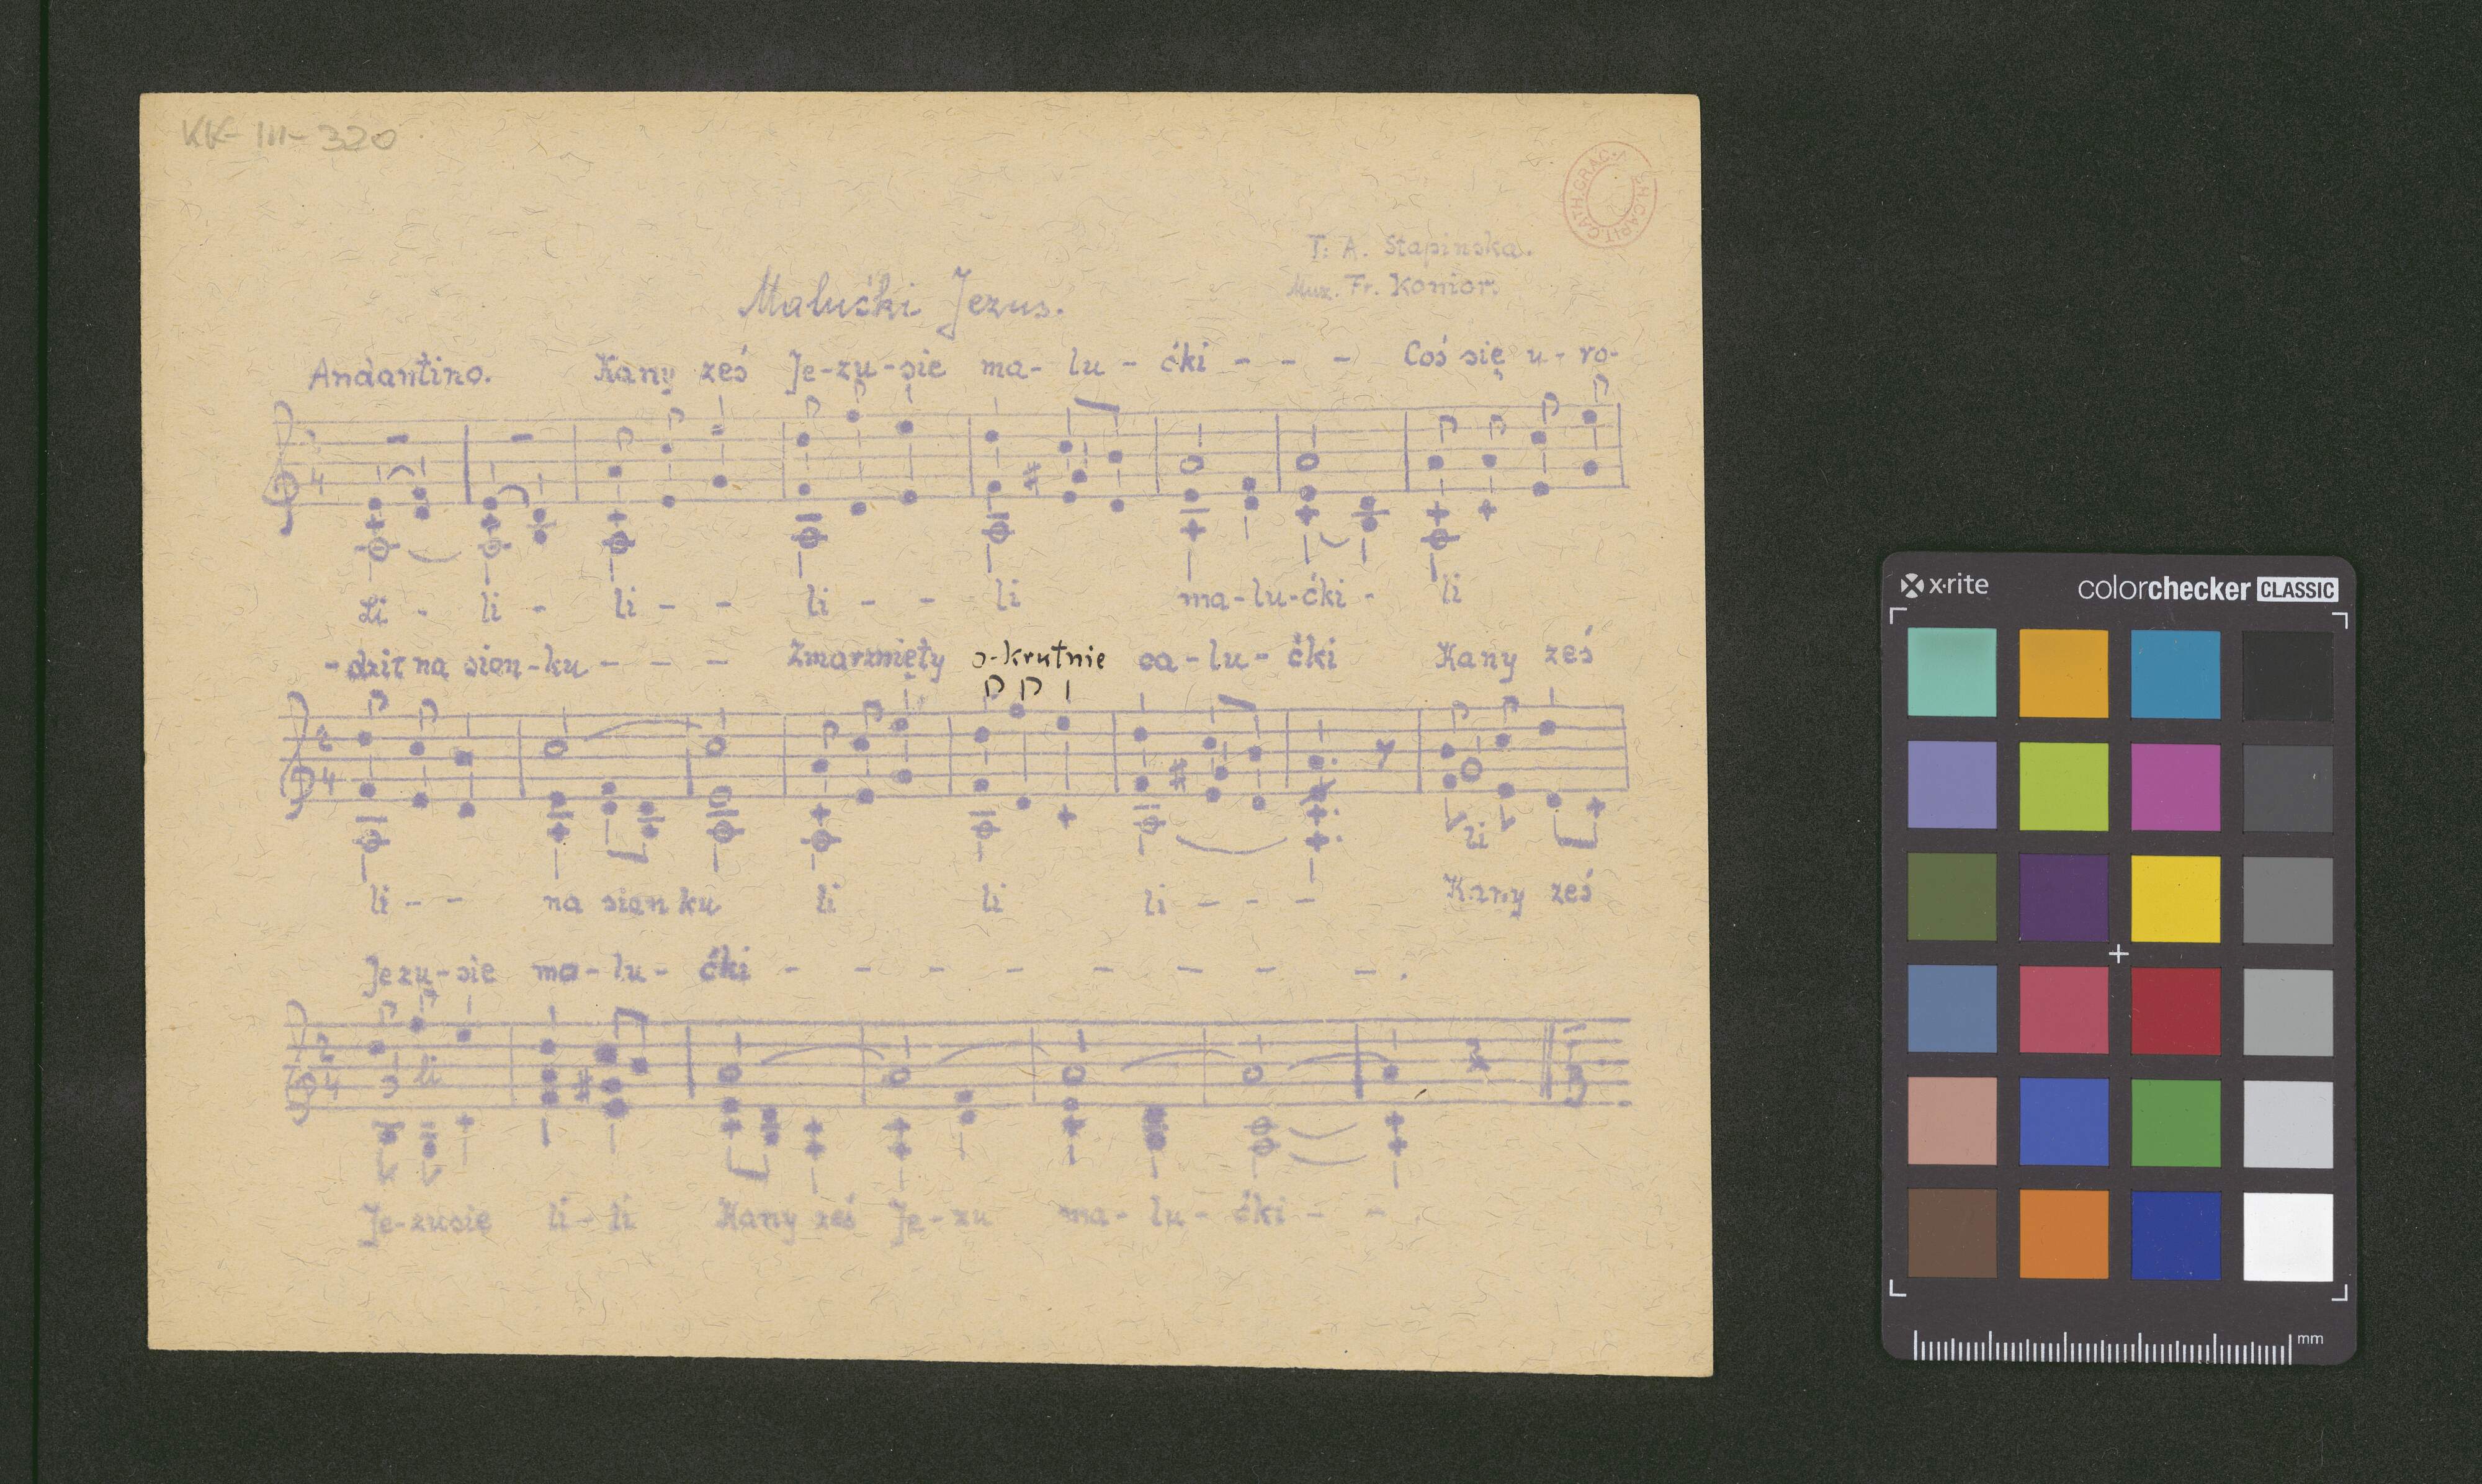 KK-III-320
T: A. Stapinska.
Muz. Fr. Konior.
Malućki Jezus.
Andantino. Kany żeś Je-zu-sie ma-lu-ćki - - - Coś się u-ro-
Li - li - li - - li - - li ma-lu-ćki - li
-dził na sian-ku - - - Zmarznięty o-krutnie ca-lu-ćki Kany żeś
li
li - - na sian ku li li li - - - Kany żeś
Jezu-sie ma-lu-ćki - - - - - - - - .
li
Je-zusie li-li Kany żeś Je-zu ma-lu-ćki - -
x·rite colorchecker CLASSIC
mm